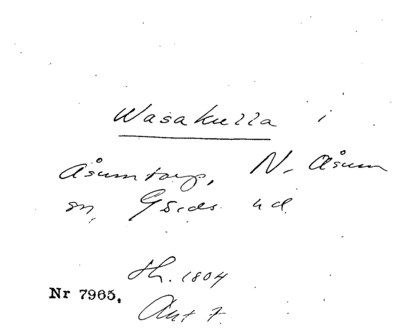 Wasakulla i
Åsumtorp, N. Åsum
sn, Gärds hd.
th. 1804
Nr 7965.
Ant 7.